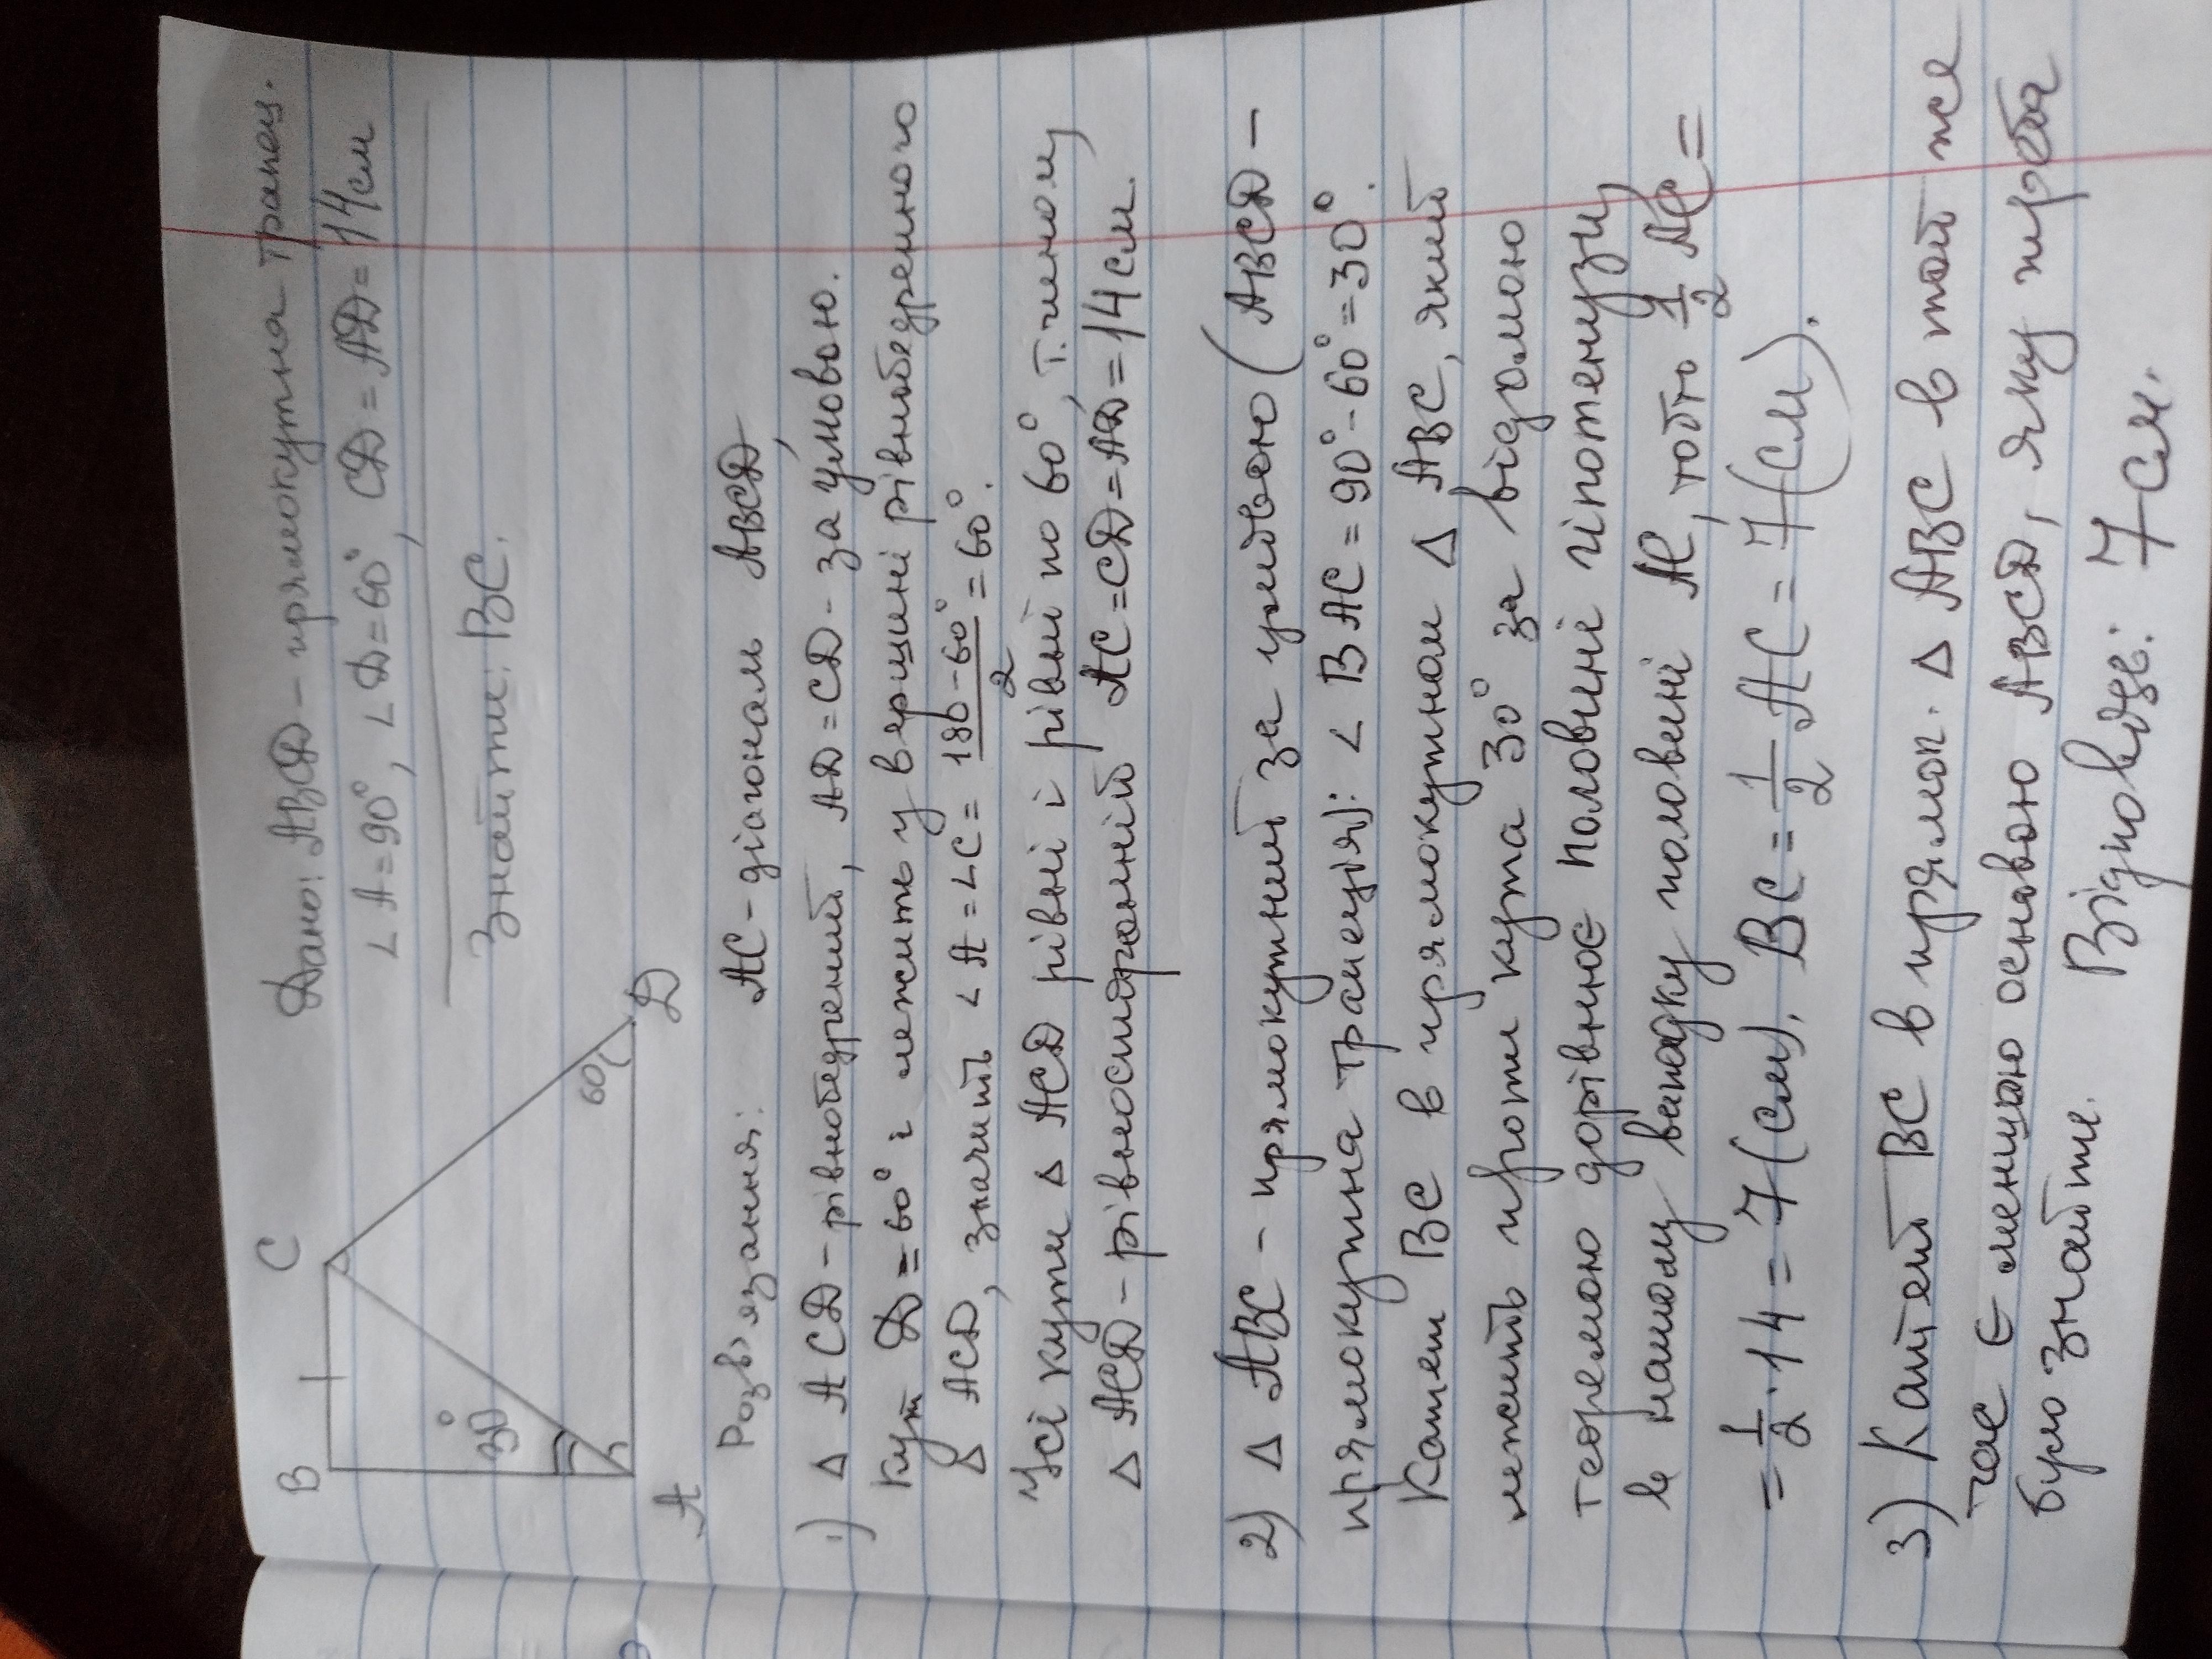 Дано: ABCD - прямокутна трапец.
∠A=90°, ∠D=60°, CD=AD=14см
Знайти: BC.
B C
30°
60
A D
Розв'язання: AC-діагональ ABCD,
1) Δ ACD-рівнобедрений, AD=CD-за умовою.
Кут D=60° і лежить у вершині рівнобедреного
Δ ACD, значить ∠A=∠C= 180-60°/2 =60°.
Усі кути Δ ACD рівні і рівні по 60°, т.чином,
Δ ACD-рівносторонній AC=CD=AD=14см.
2) Δ ABC-прямокутний за умовою (ABCD-
прямокутна трапеція): ∠BAC=90°-60°=30°.
Катет BC в прямокутном Δ ABC, який
лежить проти кута 30° за відомою
теоремою дорівнює половині гіпотенузи,
в нашому випадку половині AC, тобто 1/2 AC=
= 1/2 · 14 = 7 (см). BC = 1/2 AC = 7 (см).
3) Катет BC в прямок. Δ ABC в той же
час є меншою основою ABCD, яку треба
було знайти. Відповідь: 7см.